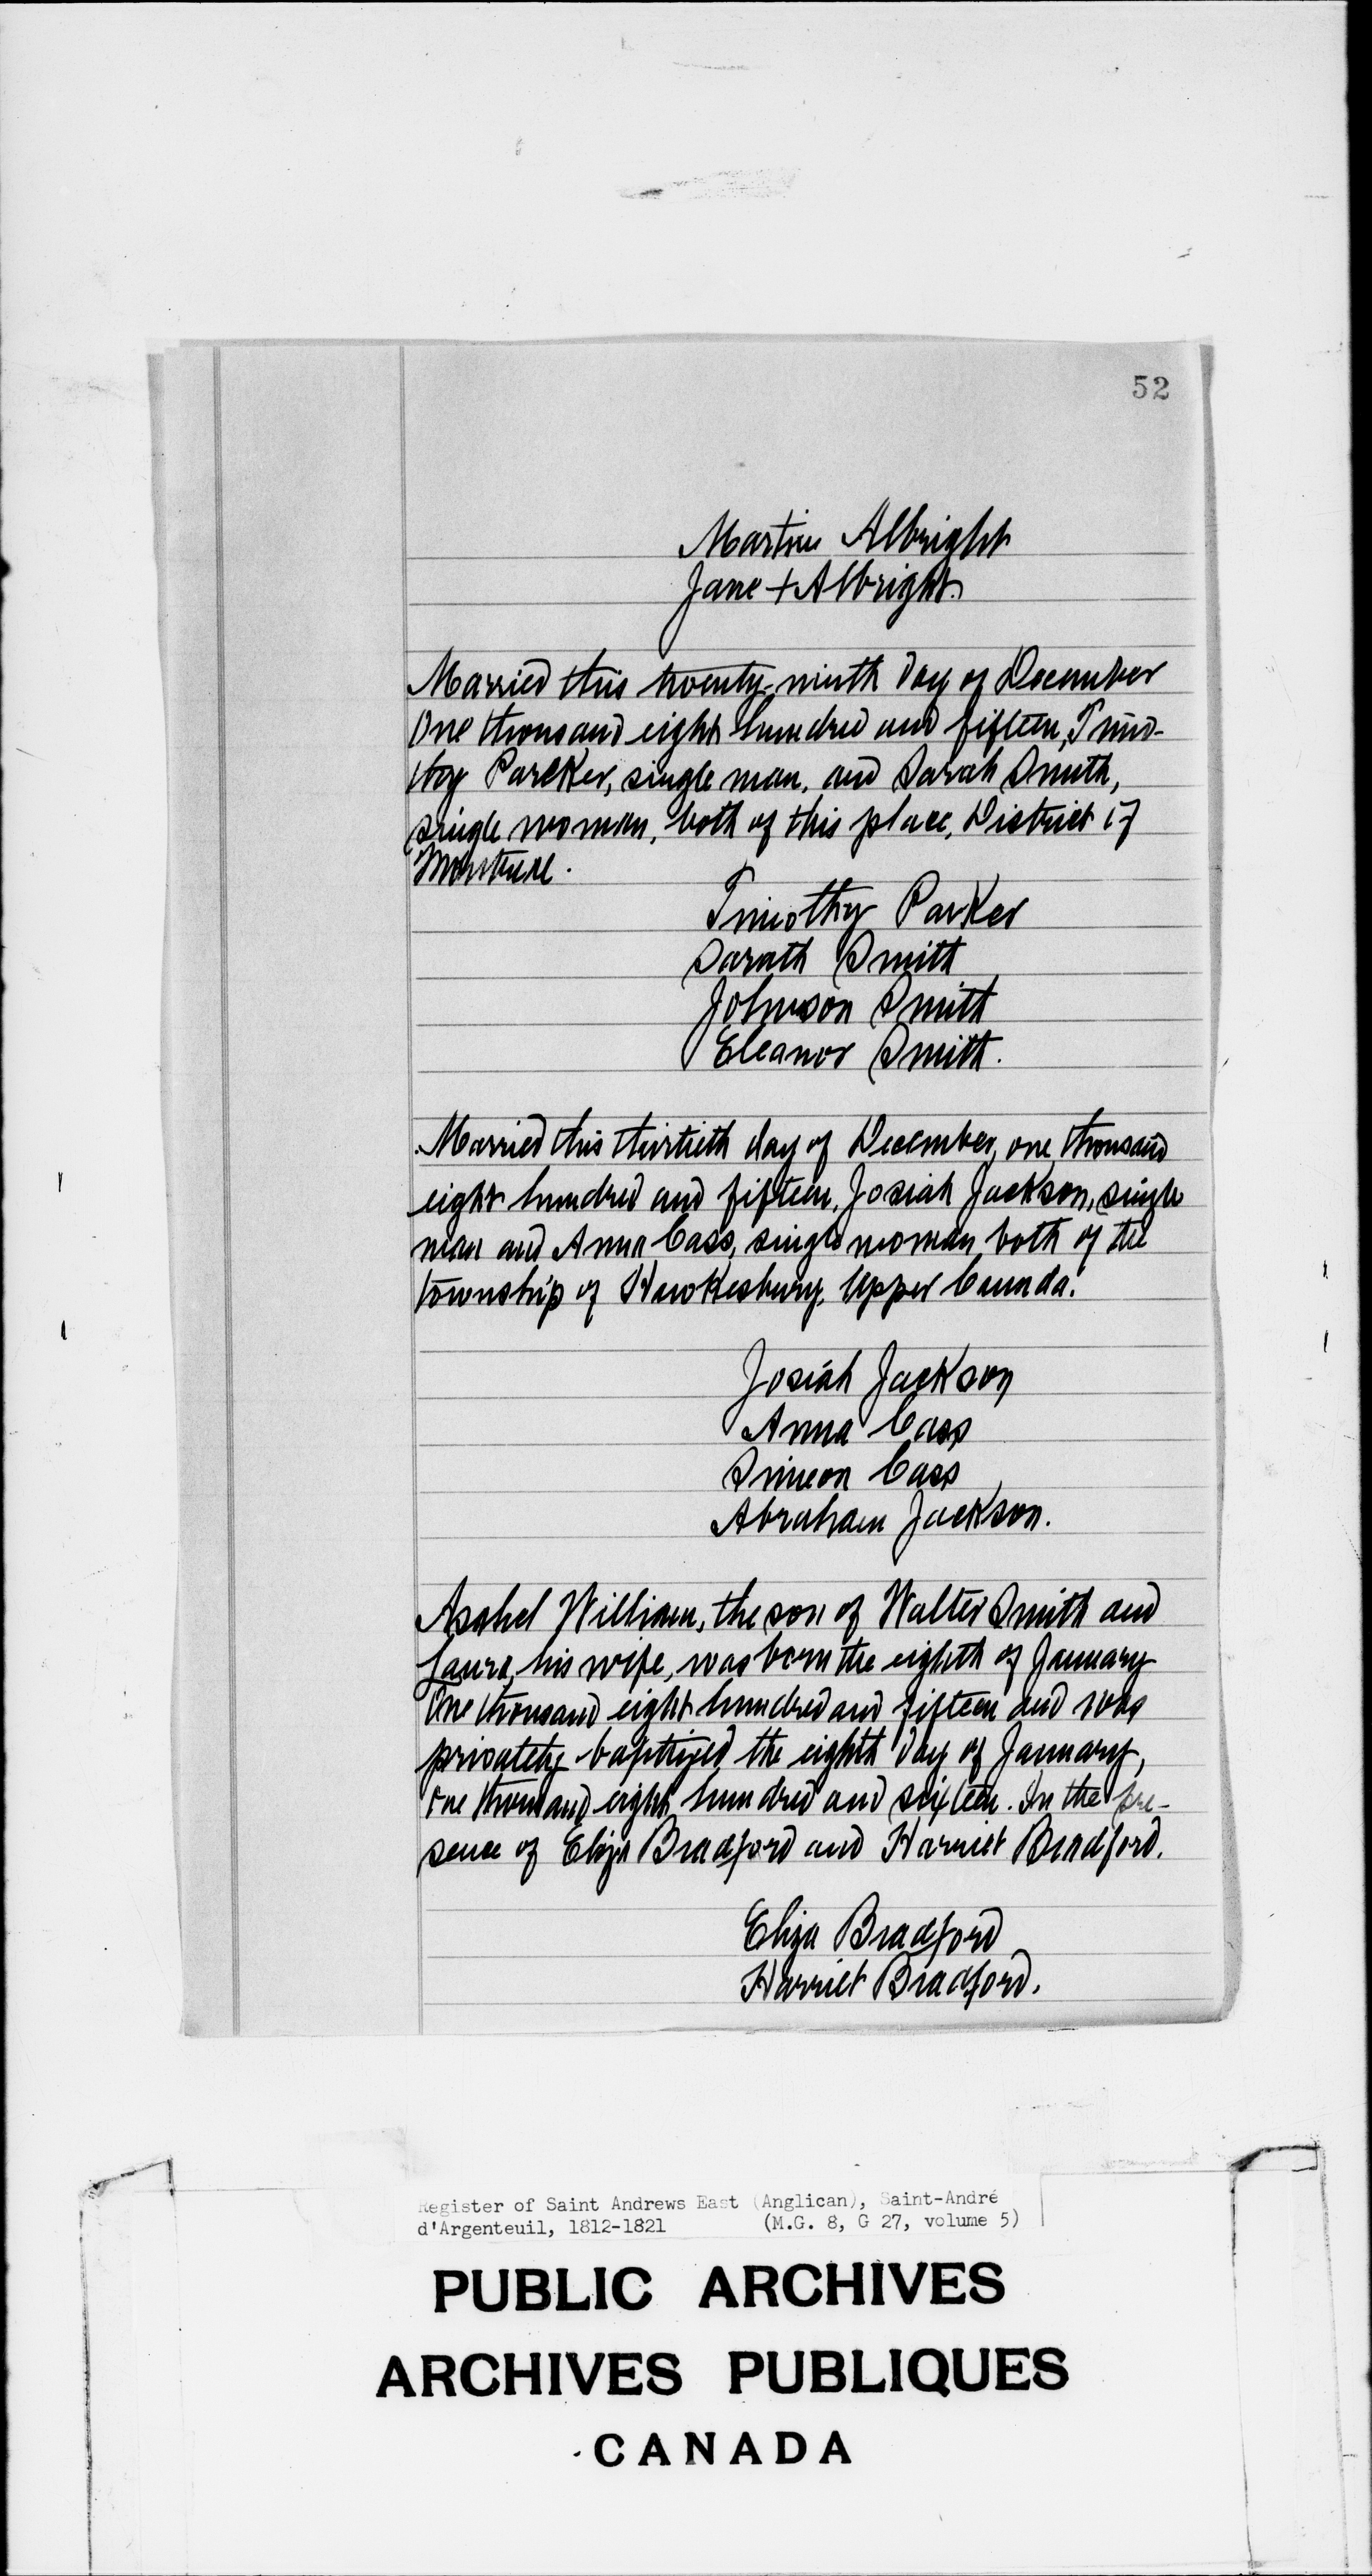 52
Martin Albright
Jane + Albright.
Married this twenty-ninth day of December
One thousand eight hundred and fifteen, Timo-
thy Parcker, single man, and Sarah Smith,
single woman, both of this place, District of
Montreal.
Timothy Parker
Sarath Smitt
Johnson Smitt
Eleanor Smitt.
Married this thirtieth day of December, one thousand
eight hundred and fifteen, Josiah Jackson, single
man and Anna Cass, single woman both of the
township of Hawkesbury, Upper Canada.
Josiah Jackson
Anna Cass
Simeon Cass
Abraham Jackson.
Asahel William, the son of Walter Smith and
Laura, his wife, was born the eighth of January
One thousand eight hundred and fifteen and was
privately baptized the eighth day of January,
one thousand eight hundred and sixteen. In the pre-
sence of Eliza Bradford and Harriet Bradford.
Eliza Bradford
Harriet Bradford.
Register of Saint Andrews East (Anglican), Saint-André
d'Argenteuil, 1812-1821 (M.G. 8, G 27, volume 5)
PUBLIC ARCHIVES
ARCHIVES PUBLIQUES
CANADA